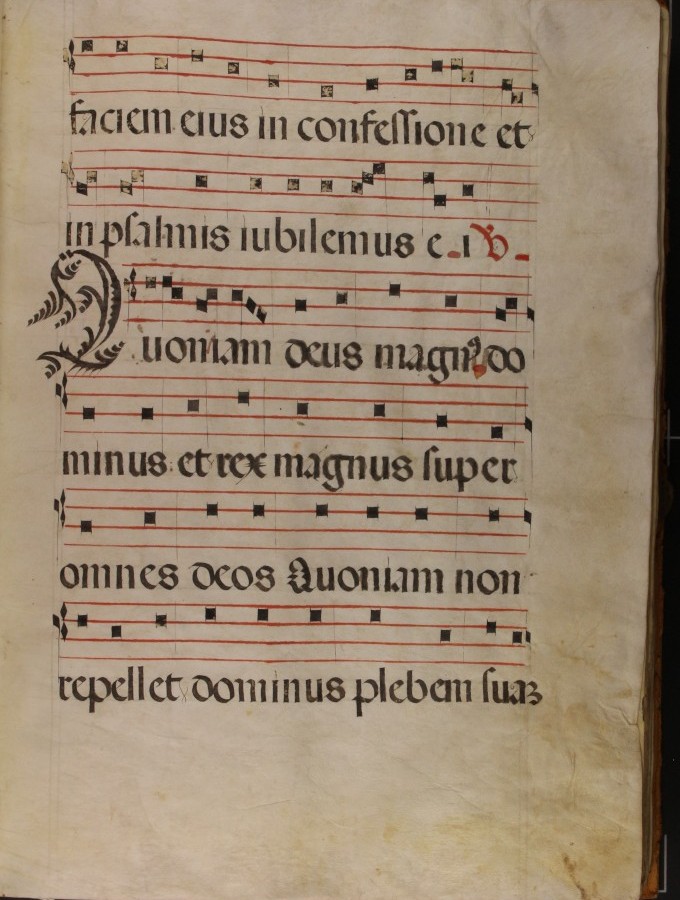 faciem eius in confessione et
in psalmis iubilemus e_i
Quoniam deus magnꝰ do
minus et rex magnus super
omnes deos Quoniam non
repellet dominus plebem suaꝫ